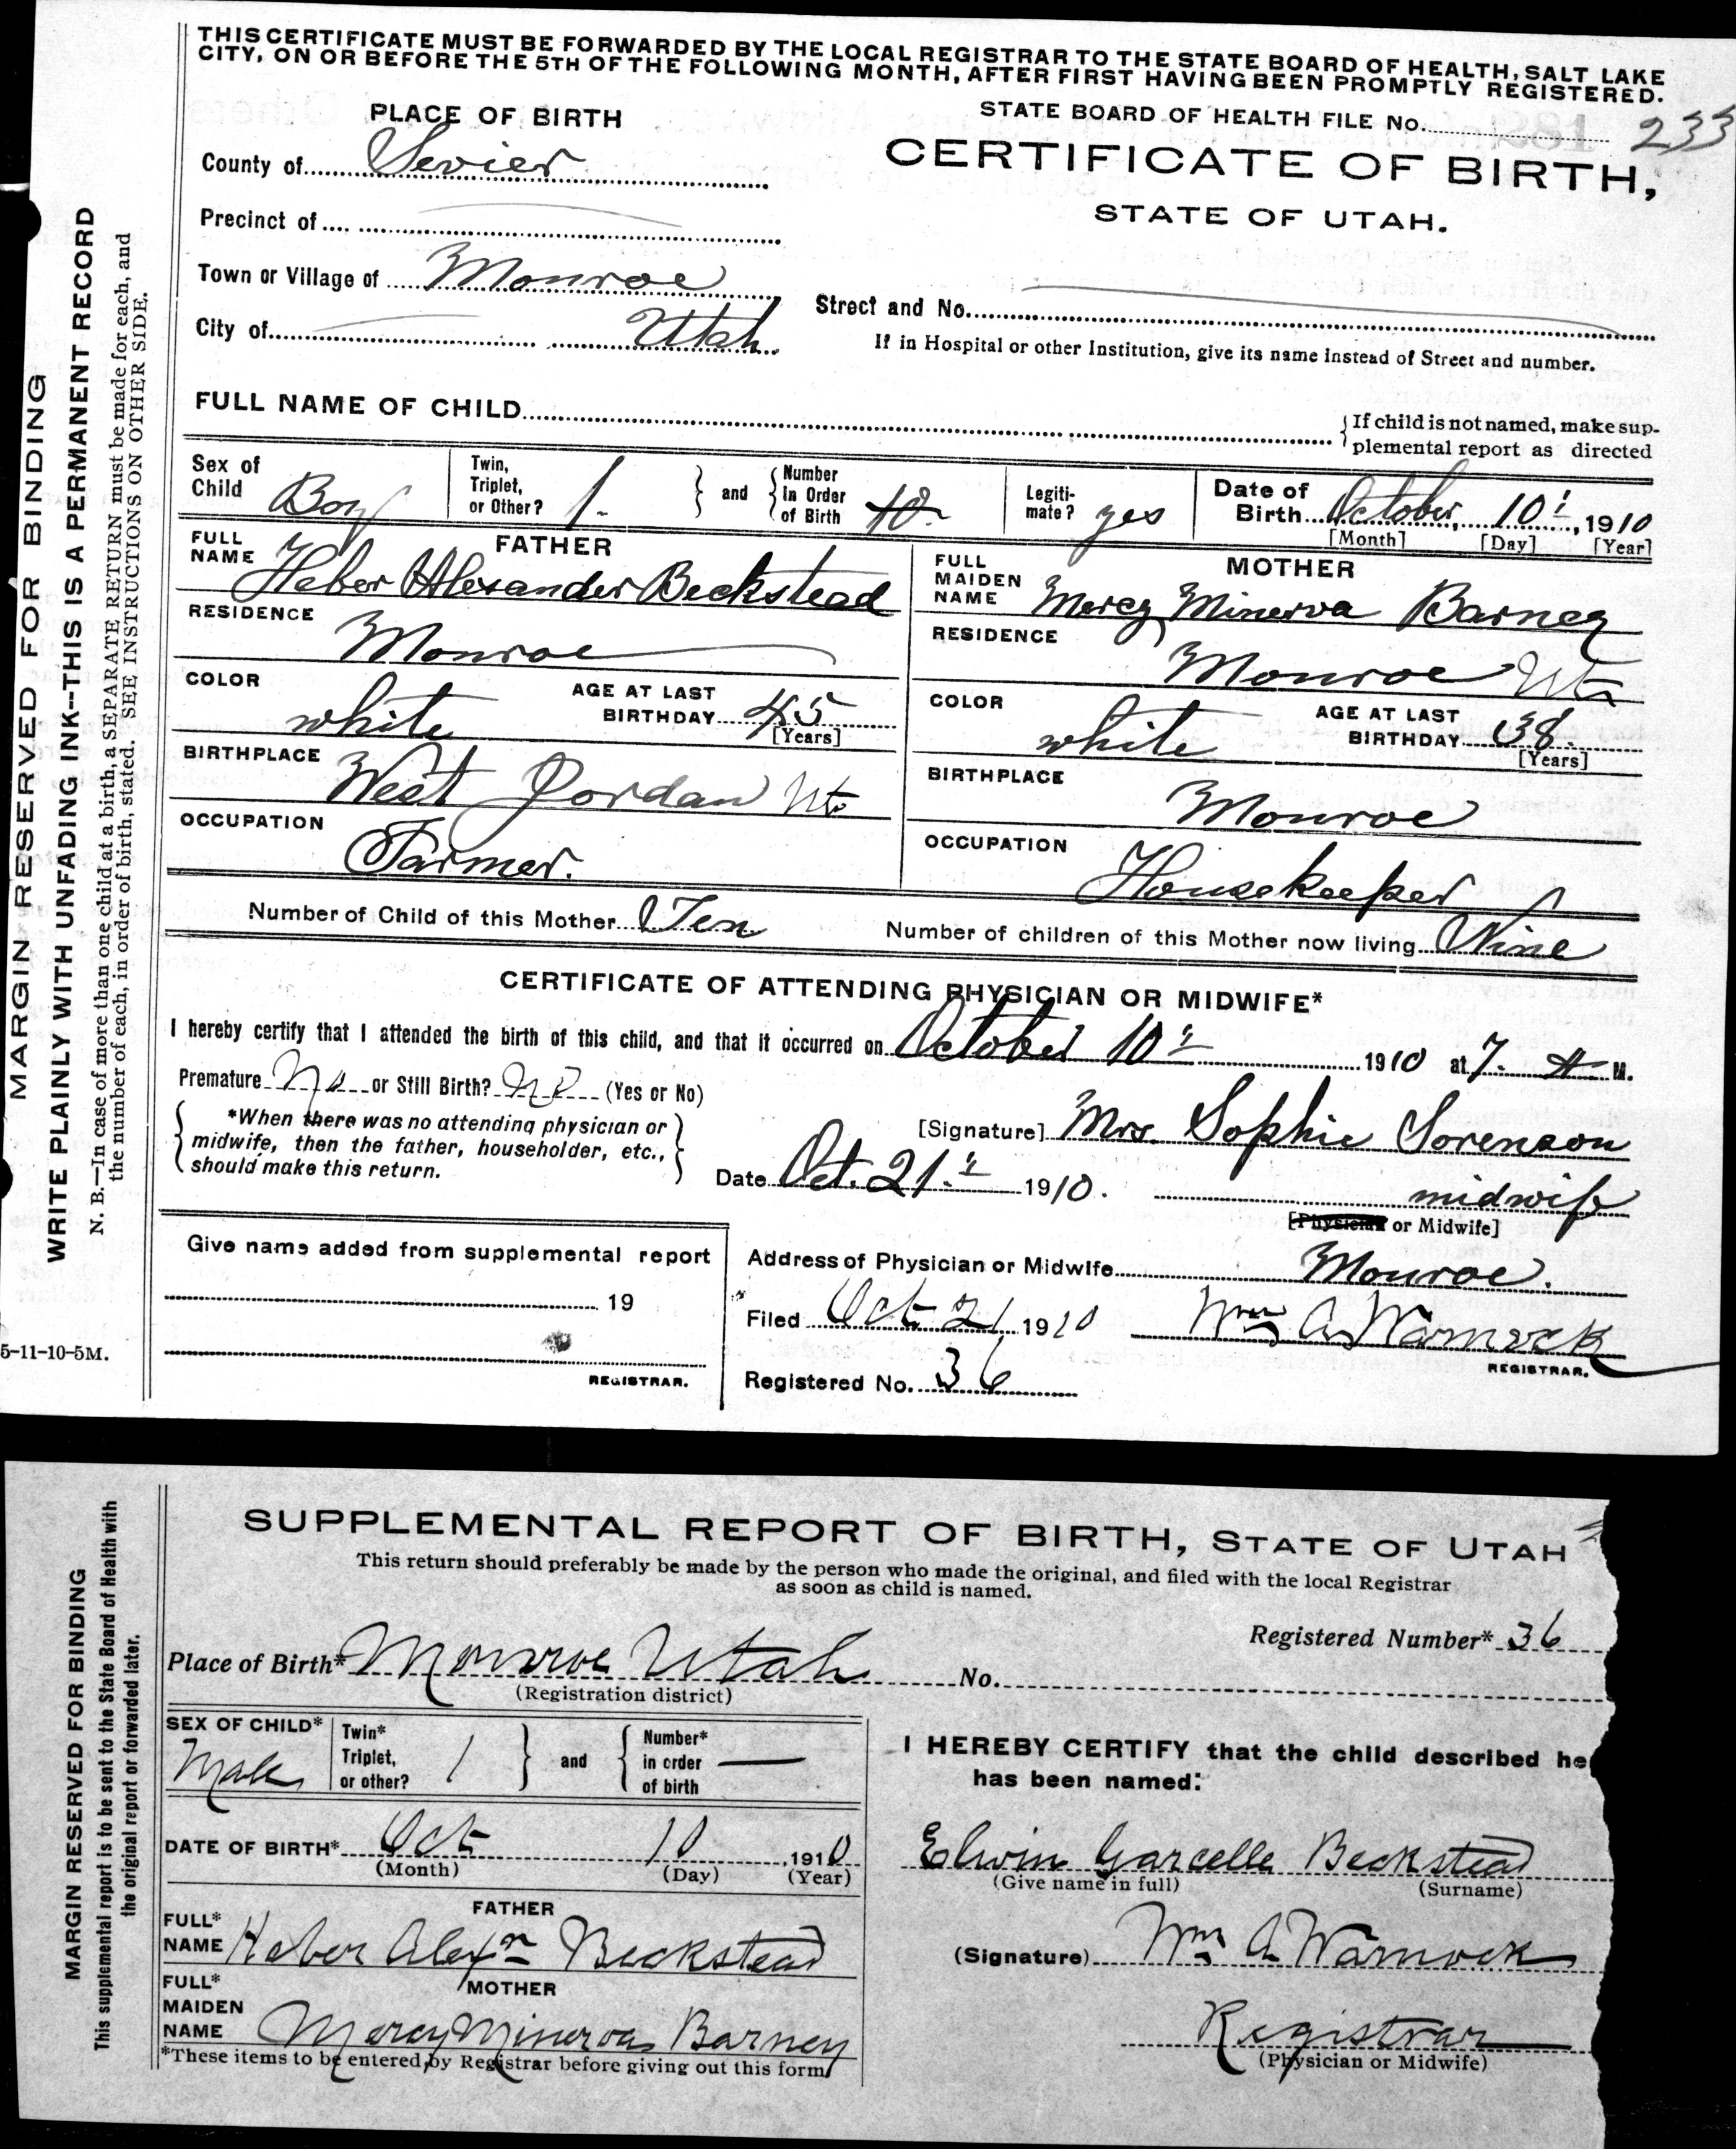 THIS CERTIFICATE MUST BE FORWARDED BY THE LOCAL REGISTRAR TO THE STATE BOARD OF HEALTH, SALT LAKE
CITY, ON OR BEFORE THE 5TH OF THE FOLLOWING MONTH, AFTER FIRST HAVING BEEN PROMPTLY REGISTERED.
PLACE OF BIRTH
STATE BOARD OF HEALTH FILE No. 233
County of Sevier
CERTIFICATE OF BIRTH,
STATE OF UTAH.
Precinct of
Town or Village of Monroe
Street and No.
City of Utah.
If in Hospital or other Institution, give its name instead of Street and number.
FULL NAME OF CHILD
If child is not named, make sup-
plemental report as directed
Sex of Child Boy
Twin, Triplet, or Other? 1.
and Number in Order of Birth 10.
Legiti-mate? yes
Date of Birth October, 10", 1910
[Month] [Day] [Year]
FATHER
FULL NAME Heber Alexander Beckstead
RESIDENCE Monroe
COLOR white AGE AT LAST BIRTHDAY 45 [Years]
BIRTHPLACE West Jordan Ut.
OCCUPATION Farmer.
MOTHER
FULL MAIDEN NAME Mercy Minerva Barney
RESIDENCE Monroe Ut
COLOR white AGE AT LAST BIRTHDAY 38. [Years]
BIRTHPLACE Monroe
OCCUPATION Housekeeper
Number of Child of this Mother Ten
Number of children of this Mother now living Nine
CERTIFICATE OF ATTENDING PHYSICIAN OR MIDWIFE*
I hereby certify that I attended the birth of this child, and that it occurred on October 10" 1910 at 7. A M.
Premature No or Still Birth? No (Yes or No)
*When there was no attending physician or
midwife, then the father, householder, etc.,
should make this return.
[Signature] Mrs. Sophie Sorenson
Date Oct. 21." 1910. midwife
[Physician or Midwife]
Give name added from supplemental report
19
REGISTRAR.
Address of Physician or Midwife Monroe.
Filed Oct 21, 1910 Wm A Warnock
REGISTRAR.
Registered No. 36
MARGIN RESERVED FOR BINDING
WRITE PLAINLY WITH UNFADING INK--THIS IS A PERMANENT RECORD
N. B.—In case of more than one child at a birth, a SEPARATE RETURN must be made for each, and
the number of each, in order of birth, stated. SEE INSTRUCTIONS ON OTHER SIDE.
5-11-10-5M.
SUPPLEMENTAL REPORT OF BIRTH, STATE OF UTAH
This return should preferably be made by the person who made the original, and filed with the local Registrar
as soon as child is named.
Registered Number* 36
Place of Birth* Monroe Utah No.
(Registration district)
SEX OF CHILD* Male
Twin* Triplet, or other? 1
and Number* in order of birth —
DATE OF BIRTH* Oct 10, 1910
(Month) (Day) (Year)
FATHER
FULL* NAME Heber Alexn Beckstead
MOTHER
FULL* MAIDEN NAME Mercy Minerva Barney
*These items to be entered by Registrar before giving out this form
I HEREBY CERTIFY that the child described he
has been named:
Elwin Garcelle Beckstead
(Give name in full) (Surname)
(Signature) Wm A Warnock
Registrar
(Physician or Midwife)
MARGIN RESERVED FOR BINDING
This supplemental report is to be sent to the State Board of Health with
the original report or forwarded later.